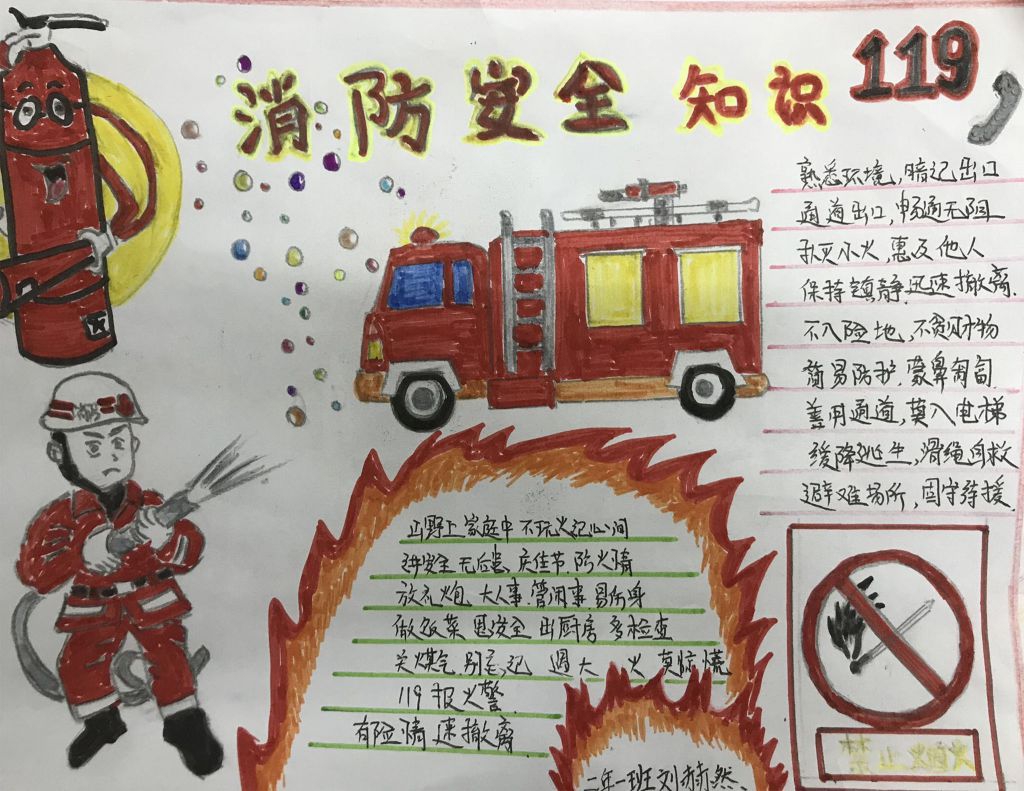 消防安全知识
119
熟悉环境,暗记出口
通道出口,畅通无阻
扑灭小火,惠及他人
保持镇静,迅速撤离.
不入险地,不贪财物
简易防护,蒙鼻匍匐
善用通道,莫入电梯
缓降逃生,滑绳自救
避难场所,固守待援
山野上 家庭中 不玩火记心间
讲安全 无后患 庆佳节 防火情
放礼炮 大人事 管闲事 易伤身
做饭菜 思安全 出厨房 多检查
关煤气 别忘记 遇大火 莫惊慌
119 报火警
有险情 速撤离
二年一班刘赫然
禁止烟火